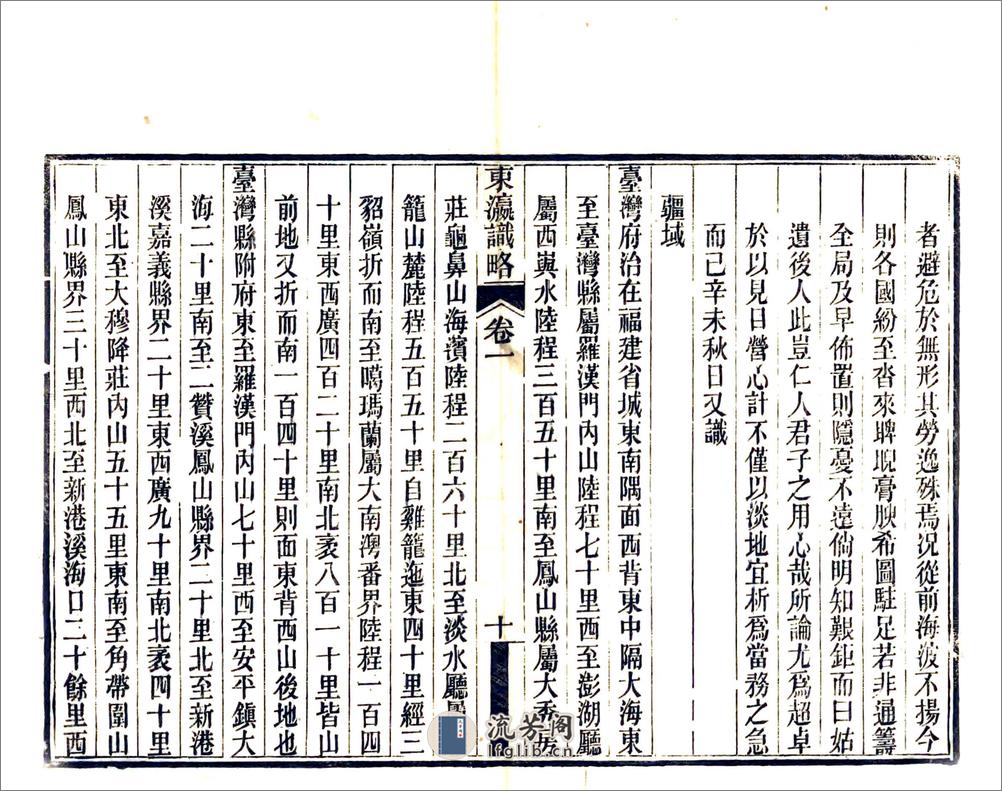 者避危於無形其勞逸殊焉況從前海波不揚今
則各國紛至沓來睥睨膏腴希圖駐足若非通籌
全局及早佈置則隱憂不遠倘明知艱鉅而曰姑
遺後人此豈仁人君子之用心哉所論尤爲超卓
於以見日營心計不僅以淡地宜析爲當務之急
而已辛未秋日又識
疆域
臺灣府治在福建省城東南隅面西背東中隔大海東
至臺灣縣屬羅漢門內山陸程七十里西至澎湖廳
屬西嶼水陸程三百五十里南至鳳山縣屬大
東瀛識略 卷一 十
莊龜鼻山海濱陸程二百六十里北至淡水廳
籠山麓陸程五百五十里自雞籠迤東四十里經三
貂嶺折而南至噶瑪蘭屬大南澳番界陸程一百四
十里東西廣四百二十里南北袤八百一十里皆山
前地又折而南一百四十里則面東背西山後地也
臺灣縣附府東至羅漢門內山七十里西至安平鎮大
海二十里南至二贊溪鳳山縣界二十里北至新港
溪嘉義縣界二十里東西廣九十里南北袤四十里
東北至大穆降莊內山五十五里東南至角帶圍山
鳳山縣界三十里西北至新港溪海口二十餘里西
流芳阁